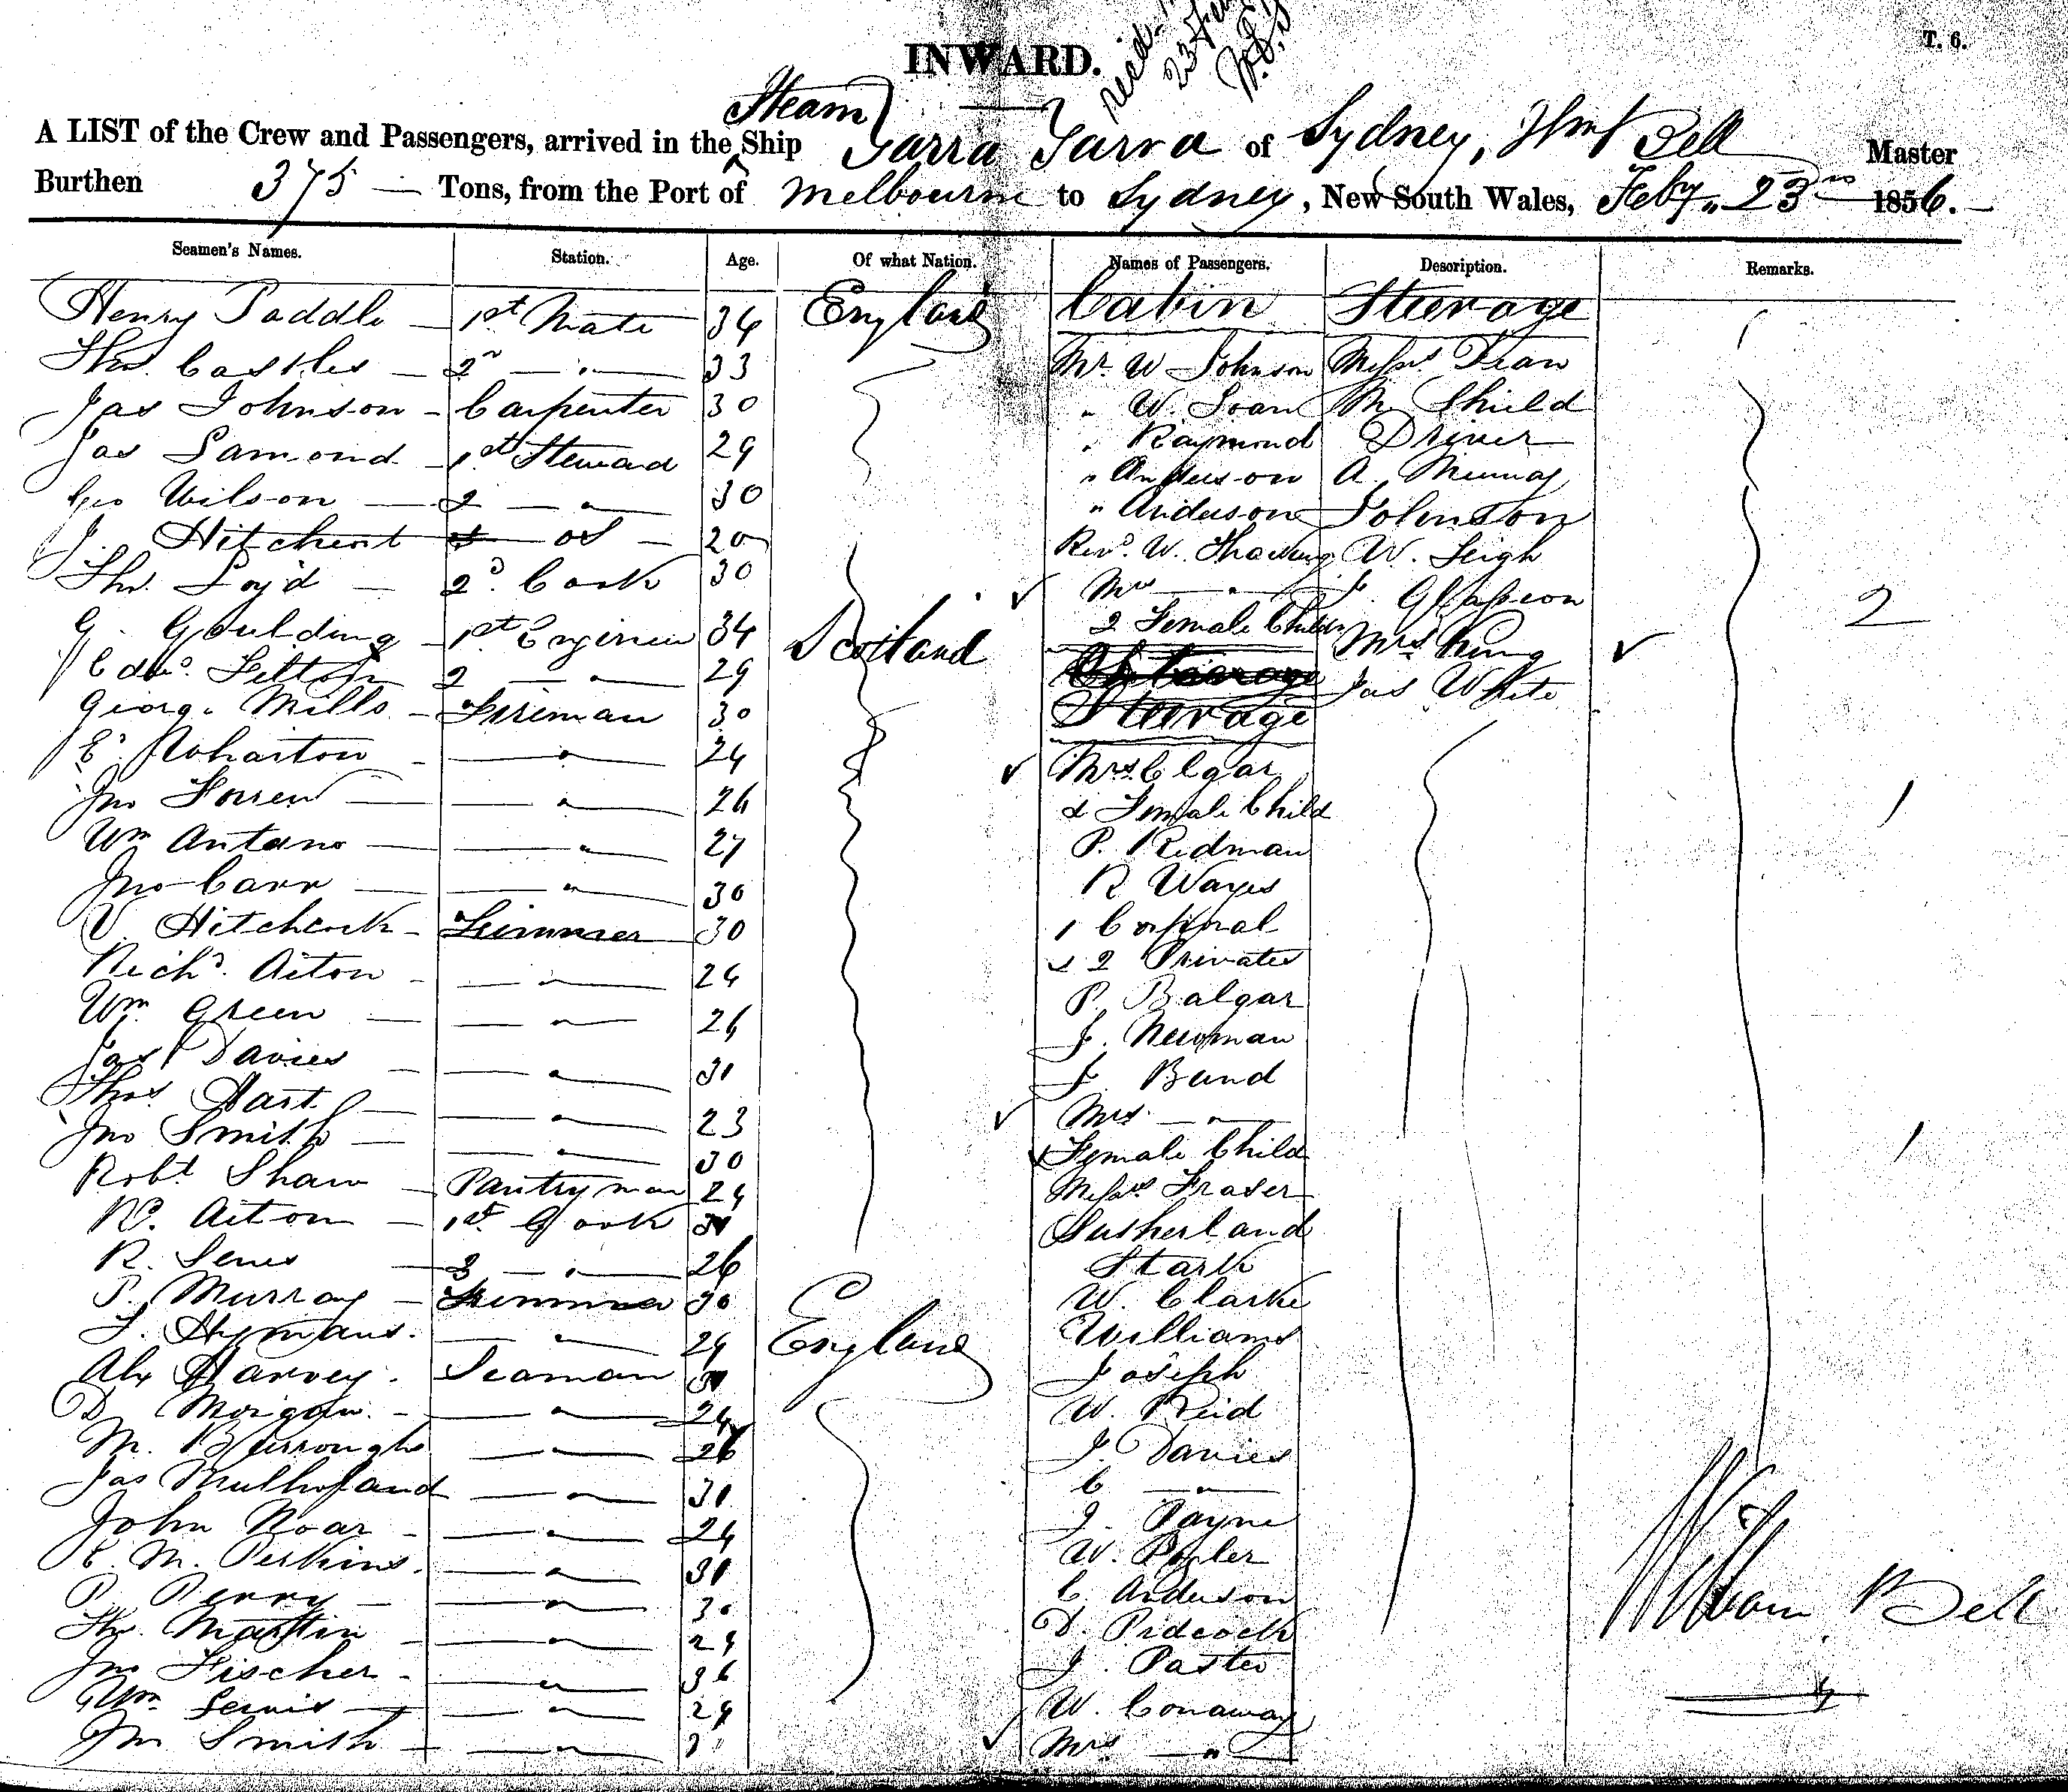 T. 6.
INWARD.
Steam
A LIST of the Crew and Passengers, arrived in the ^ Ship Yarra Yarra of Sydney, Wm Bell Master
Burthen 375 — Tons, from the Port of Melbourne to Sydney, New South Wales, Feby 23rd 1856.
Seamen's Names. Station. Age. Of what Nation. Names of Passengers. Description. Remarks.
Henry Paddle 1st Mate 34 England Cabin Steerage
Thos. Castles 2nd " 33 Mr. W Johnson Messrs Dean
Jas Johnson Carpenter 30 " W. Loan M Shield
Jas Lamond 1st Steward 29 " Raymond Driver
Geo Wilson 2 " 30 " Anderson A. Murray
J. Hitchent os 20 " Anderson Johnston
Thos. Loyd 2d. Cook 30 Revd. W. W. Leigh
G. Goulding 1st Engineer 34 Scotland Mrs " J. Glasson
2 Female Childn Mrs King 2
Edwd. Felton 2 " 29 Jas White
George Mills Fireman 30 Steerage
E. Wharton " 24 Mrs Elgar
Jno " 26 & Female Child 1
Wm Antono " 27 P. Redman
Jno Carr " 30 R Wayes
V. Hitchcock Trimmer 30 1 Corporal
Richd. Aiton " 24 2 Privates
Wm Green " 26 P. Balgar
Jas Davies " 30 J. Newman
Thos Hart " 23 J. Band
Jno Smith " 30 Mrs "
Female Child 1
Robt Shaw Pantryman 24 Messrs Fraser
Rd. Aiton 1st Cook Sutherland
R. 3 " 26 Stark
P. Murray Trimmer 30 W. Clarke
T. Hymans. " 24 England Williams
Alex Harvey. Seaman 30 Joseph
D Morgan. " 24 W. Reid
M. Burroughs " 26 J. Davies
Jas Mulholand " 30 C "
John Noar " 24 J. Payne
E. M. Perkins. " 30 W. Pogler
P. Perry " 30 C. Anderson
Thos. Martin " 24 D. Pidcock
Jno Fischer " 36 J. Paster
Wm Lewis " 24 W. Conaway
Jno Smith " Mrs "
William Bell